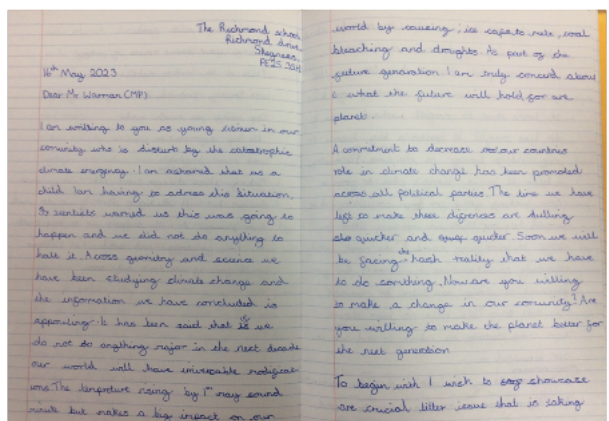 The Richmond school
Richmond drive
Skegness
PE25 3SH
16th May 2023
Dear Mr Warman (MP)
I am writing to you as young citizen in our
comunity who is disturb by the catastrophic
climate emergency. I am ashamed that as a
child I am having to adress this situation,
Scientists warned us this was going to
happen and we did not do anything to
halt it. Across geomitry and science we
have been studying climate change and
the information we have concluded is
appauling. It has been said that if we
do not do anything major in the next decade
our world will have
ions. The tempreture rising by 1° may sound
but makes a big impact on our
world by causing; ice caps to melt, coal
bleaching and droughts. As part of the
future generation I am truly concerd about
what the future will hold for are
planet.
A commitment to decrease our countries
role in climate change has been promoted
across all political parties. The time we have
left to make these difrences are
quicker and quicker. Soon we will
be facing the harsh that we have
to do somthing. Now are you willing
to make a change in our comunity? Are
you willing to make the planet better for
the next generation
To begin with I wish to showcase
are crucial litter issue that is taking